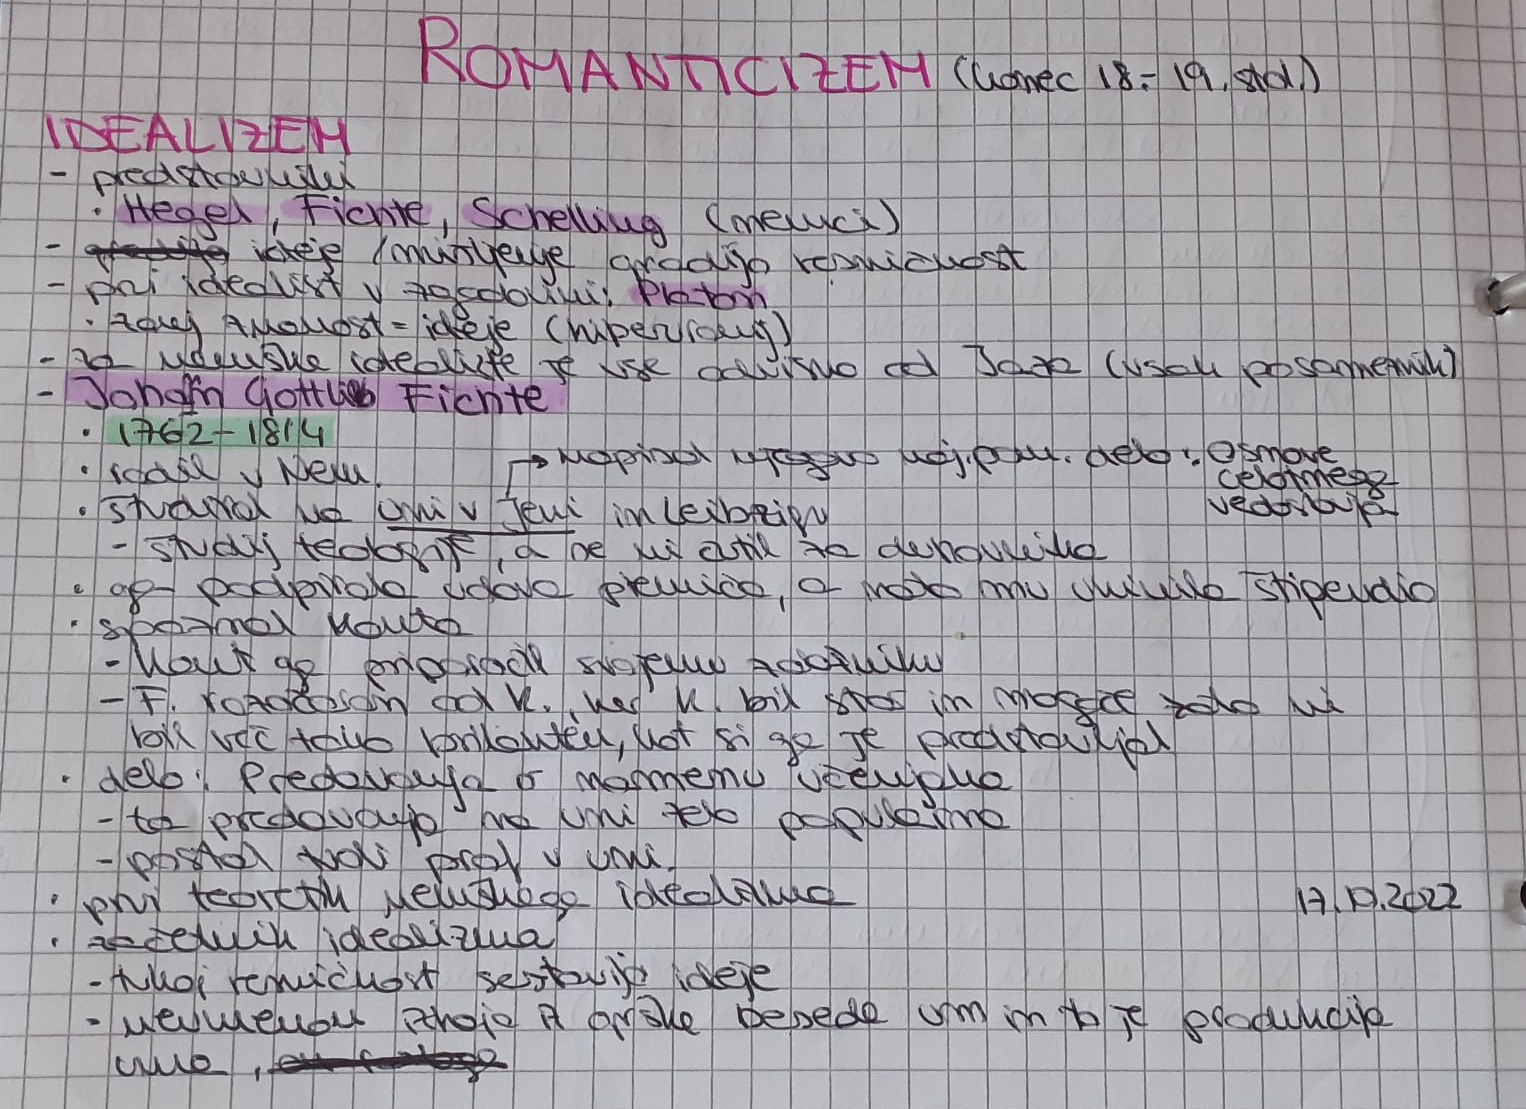 ROMANTICIZEM (konec 18.- 19. stol.)
IDEALIZEM
- predstavniki
· Hegel, Fichte, Schelling (nemci)
- ideje /mišljenje gradijo resničnost
- prvi idealist v zgodovini: Platon
· zanj znanost = ideje (hiperuranij)
- za nemške idealiste je vse odvisno od Jaza (vsak posameznik)
- Johann Gottlieb Fichte
· 1762 - 1814
→ napisal njegovo naj.pom. delo: Osnove
celotnega
vedoslovja
· rodil v Nem.
· študiral na uni v Jeni in Leibzign
- študij teologije, a ne ni čutil za duhovnika
· ga podpirala vdova plemica, a nato mu ukinila štipendio
· spoznal Kanta
- Kant ga priporočil svojemu založniku
- F. razočaran od K., ker K. bil star in mogoče zato ni
bil več tako briljanten, kot si ga je predstavljal
· delo: Predavanja o moznemu učenjaka
- ta predavanja na uni zelo popularna
- postal tudi prof v uni.
· prvi teoretik nemškega idealizma
17.10.2022
· začetnik idealizma
- tukaj resničnost sestavljajo ideje
- noumenon izhaja iz grške besede um in to je produkcija
uma,